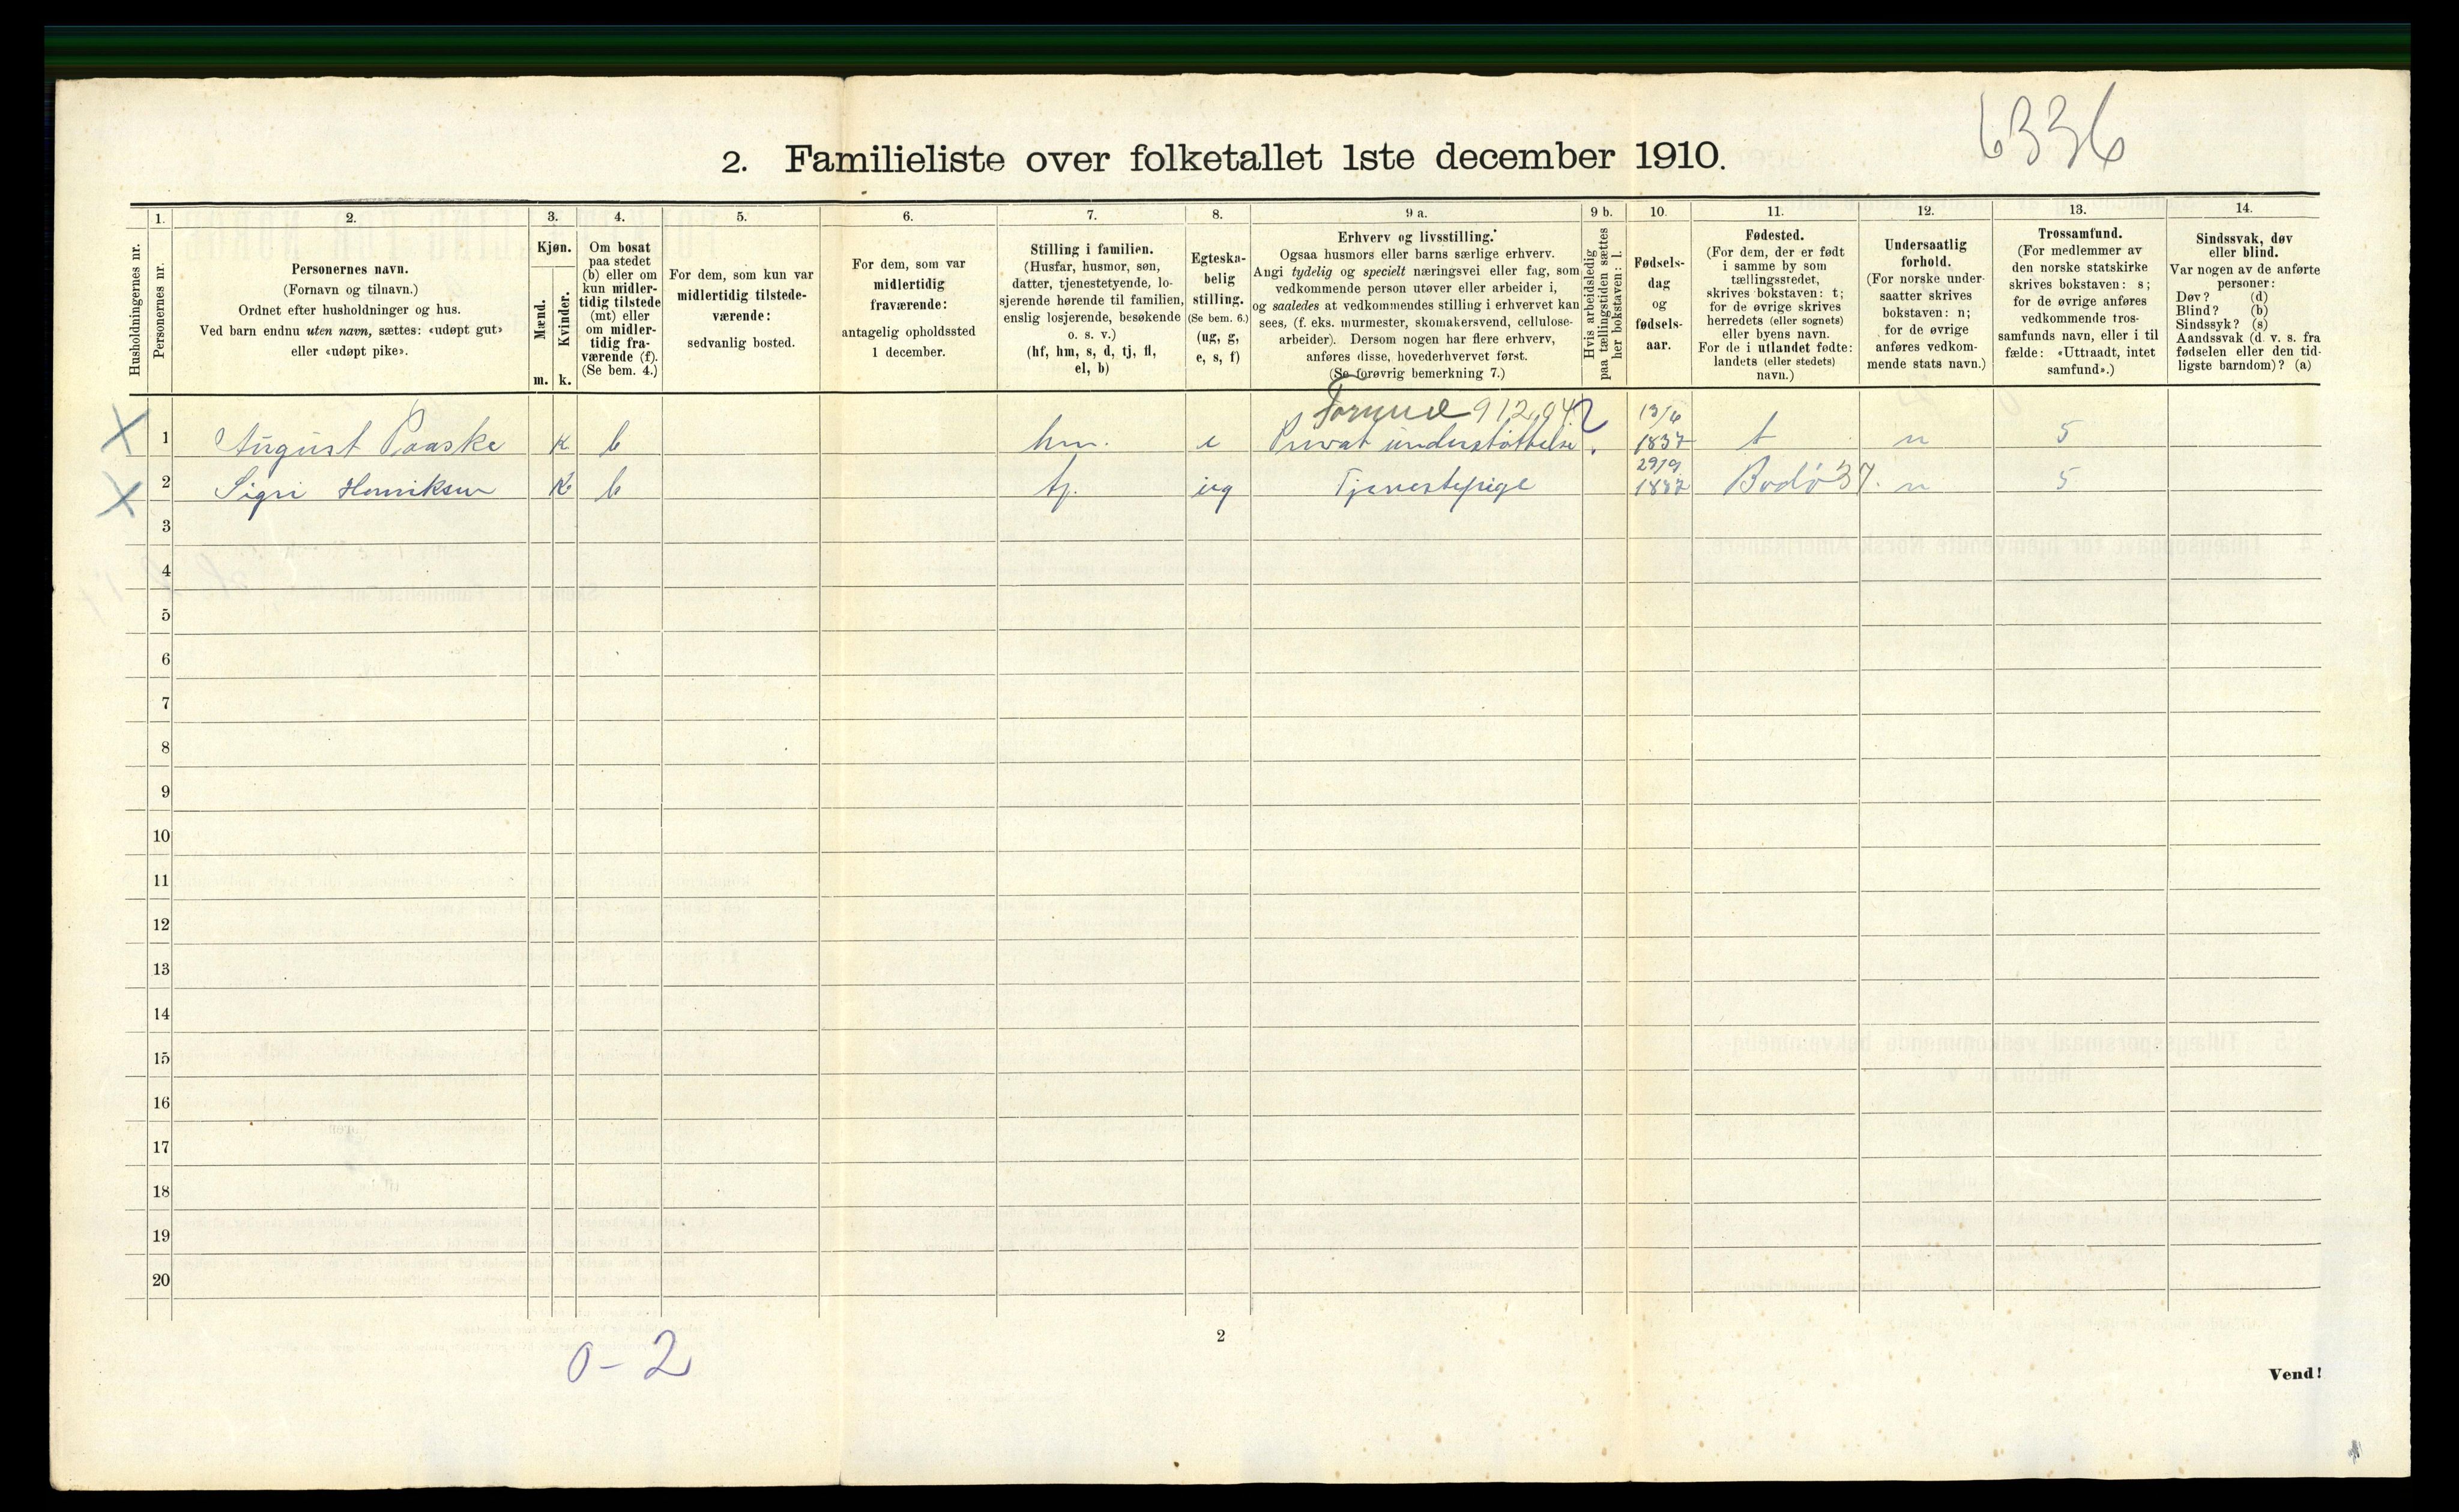 6336
2. Familieliste over folketallet 1ste december 1910.
Husholdningernes nr.
1.
Personernes nr.
2.
Personernes navn.
(Fornavn og tilnavn.)
Ordnet efter husholdninger og hus.
Ved barn endnu uten navn, sættes: «udøpt gut»
eller «udøpt pike».
3.
Kjøn.
Mænd.
Kvinder.
m. k.
4.
Om bosat
paa stedet
(b) eller om
kun midler-
tidig tilstede
(mt) eller
om midler-
tidig fra-
værende (f).
(Se bem. 4.)
5.
For dem, som kun var
midlertidig tilstede-
værende:
sedvanlig bosted.
6.
For dem, som var
midlertidig
fraværende:
antagelig opholdssted
1 december.
7.
Stilling i familien.
(Husfar, husmor, søn,
datter, tjenestetyende, lo-
sjerende hørende til familien,
enslig losjerende, besøkende
o. s. v.)
(hf, hm, s, d, tj, fl,
el, b)
8.
Egteska-
belig
stilling.
(Se bem. 6.)
(ug, g,
e, s, f)
9 a.
Erhverv og livsstilling.
Ogsaa husmors eller barns særlige erhverv.
Angi tydelig og specielt næringsvei eller fag, som
vedkommende person utøver eller arbeider i,
og saaledes at vedkommendes stilling i erhvervet kan
sees, (f. eks. murmester, skomakersvend, cellulose-
arbeider). Dersom nogen har flere erhverv,
anføres disse, hovederhvervet først.
(Se forøvrig bemerkning 7.)
9 b.
Hvis arbeidsledig
paa tællingstiden sættes
her bokstaven: l.
10.
Fødsels-
dag
og
fødsels-
aar.
11.
Fødested.
(For dem, der er født
i samme by som
tællingsstedet,
skrives bokstaven: t;
for de øvrige skrives
herredets (eller sognets)
eller byens navn.
For de i utlandet fødte:
landets (eller stedets)
navn.)
12.
Undersaatlig
forhold.
(For norske under-
saatter skrives
bokstaven: n;
for de øvrige
anføres vedkom-
mende stats navn.)
13.
Trossamfund.
(For medlemmer av
den norske statskirke
skrives bokstaven: s;
for de øvrige anføres
vedkommende tros-
samfunds navn, eller i til
fælde: «Uttraadt, intet
samfund».)
14.
Sindssvak, døv
eller blind.
Var nogen av de anførte
personer:
Døv? (d)
Blind? (b)
Sindssyk? (s)
Aandssvak (d. v. s. fra
fødselen eller den tid-
ligste barndom)? (a)
Formue 912,04 2 13/6
X 1 August Paaske K b hm. e Privat understøttelse . 1837 t n s
29/9
X 2 Sigri Henriksen K b tj. ug Tjenestepige 1837 Bodø 37. n s
3
4
5
6
7
8
9
10
11
12
13
14
15
16
17
18
19
20
0 - 2
2
Vend!